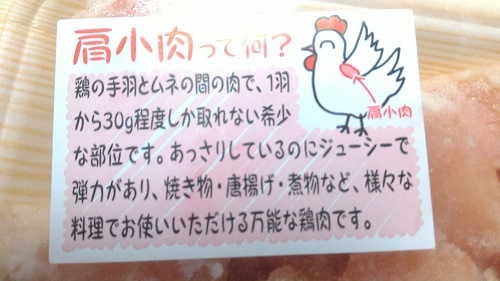 肩小肉って何？
肩小肉
鶏の手羽とムネの間の肉で、1羽
から30g程度しか取れない希少
な部位です。あっさりしているのにジューシーで
弾力があり、焼き物・唐揚げ・煮物など、様々な
料理でお使いいただける万能な鶏肉です。